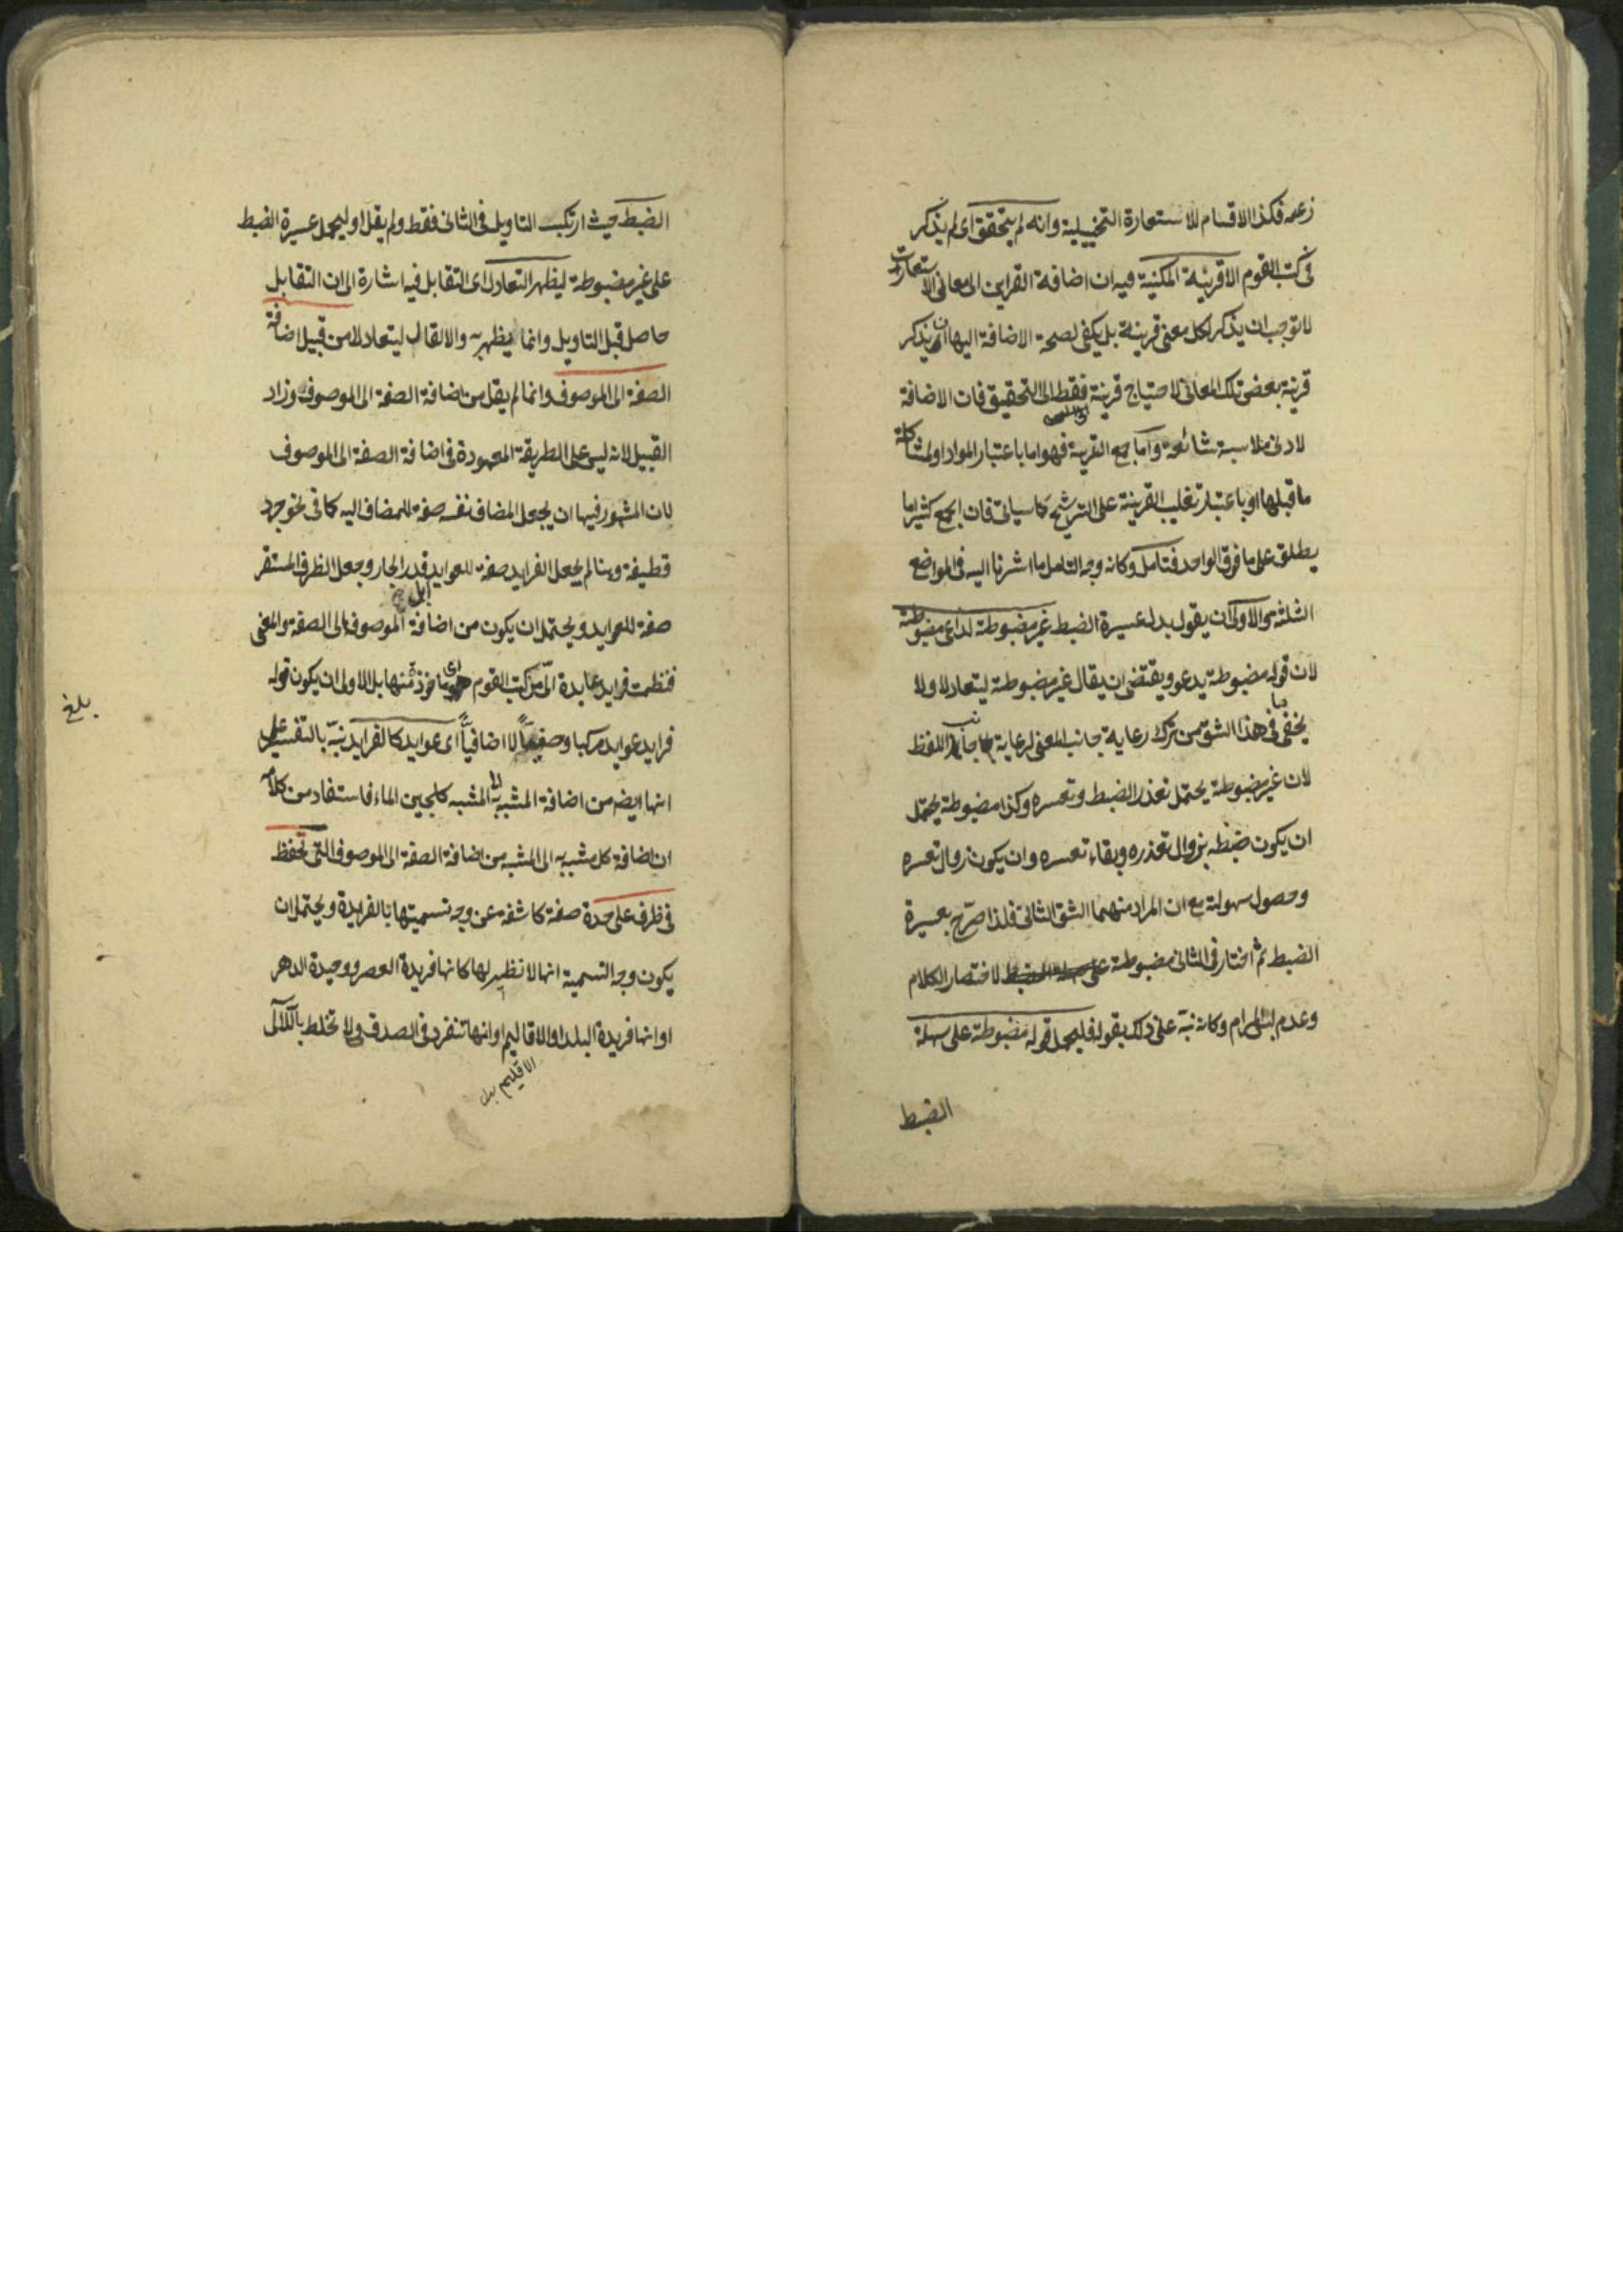 زعمه فكذا الاقسام للاستعارة التخييلية وانه لم يتحقق اى لم يذكر
فى كتب القوم الا قرينة المكنية فيه ان اضافة القراين الى معانى الاستعارات
لا توجب ان يذكر لكل معنى قرينة بل يكفى لصحة الاضافة اليها ان يذكر
قرينة بعض تلك المعانى لاحتياج قرينة فقط الى التحقيق فان الاضافة
لادنى ملابسة شائعة واما جمع القرينة فهو اما باعتبار المواد او لمشاكلة
ما قبلها او باعتبار تغليب القرينة على الترشيح كما سياتى فان الجمع كثيرا ما
يطلق على ما فوق الواحد فتامل وكانه وجه التامل ما اشرنا اليه فى المواضع
الثلثة والاولى ان يقول بدل عسيرة الضبط غير مضبوطة لداعى مضبوطة
لان قوله مضبوطة يدعو ويقتضى ان يقال غير مضبوطة ليتعادلا ولا
يخفى ما فى هذا الشق من ترك رعاية جانب المعنى لرعاية جانب اللفظ
لان غير مضبوطة يحتمل تعذر الضبط وتعسره وكذا مضبوطة يحتمل
ان يكون ضبطه بزوال تعذره وبقاء تعسره وان يكون زوال تعسره
وحصول سهولة مع ان المراد منهما الشق الثانى فلذا صرح بعسيرة
الضبط ثم اختار فى الثانى مضبوطة لاختصار الكلام
وعدم لبس المرام وكانه نبه على ذلك بقوله فليحمل قوله مضبوطة على سهلة
الضبط
الضبط حيث ارتكب التاويل فى الثانى فقط ولم يقل او ليحمل عسيرة الضبط
على غير مضبوطة ليظهر التعادل اى التقابل فيه اشارة الى ان التقابل
حاصل قبل التاويل وانما يظهر به والا لقال ليتعادلا من قبيل اضافة
الصفة الى الموصوف وانما لم يقل من اضافة الصفة الى الموصوف وزاد
القبيل لانه ليس على الطريقة المعهودة فى اضافة الصفة الى الموصوف
لان المشهور فيها ان يجعل المضاف نفسه صفة للمضاف اليه كما فى نحو جرد
قطيفة وهنا لم يجعل الفرايد صفة للعوايد قدر الجار وجعل الظرف المستقر
صفة للعوايد ويحتمل ان يكون من اضافة الموصوف الى الصفة والمعنى
فنظمت فرايد عايدة الى من كتب القوم اى ماخوذة منها بل الاولى ان يكون قوله
فرايد عوايد مركبا وصفيا لا اضافيا اى عوايد كالفرايد نبه بالتفسير على
انها ايضه من اضافة المشبه به الى المشبه كلجين الماء فاستفاد من كلامه
ان اضافة كل مشبه به الى المشبه من اضافة الصفة الى الموصوف التى تحفظ
فى ظرف على حدة صفة كاشفة عن وجه تسميتها بالفريدة ويحتمل ان
يكون وجه التسمية انها لا نظير لها كانها فريدة العصر ووحيدة الدهر
او انها فريدة البلد او الاقاليم او انها تنفرد فى الصدف ولا تخلط باللآلى
الاقليم بدل
بلغ